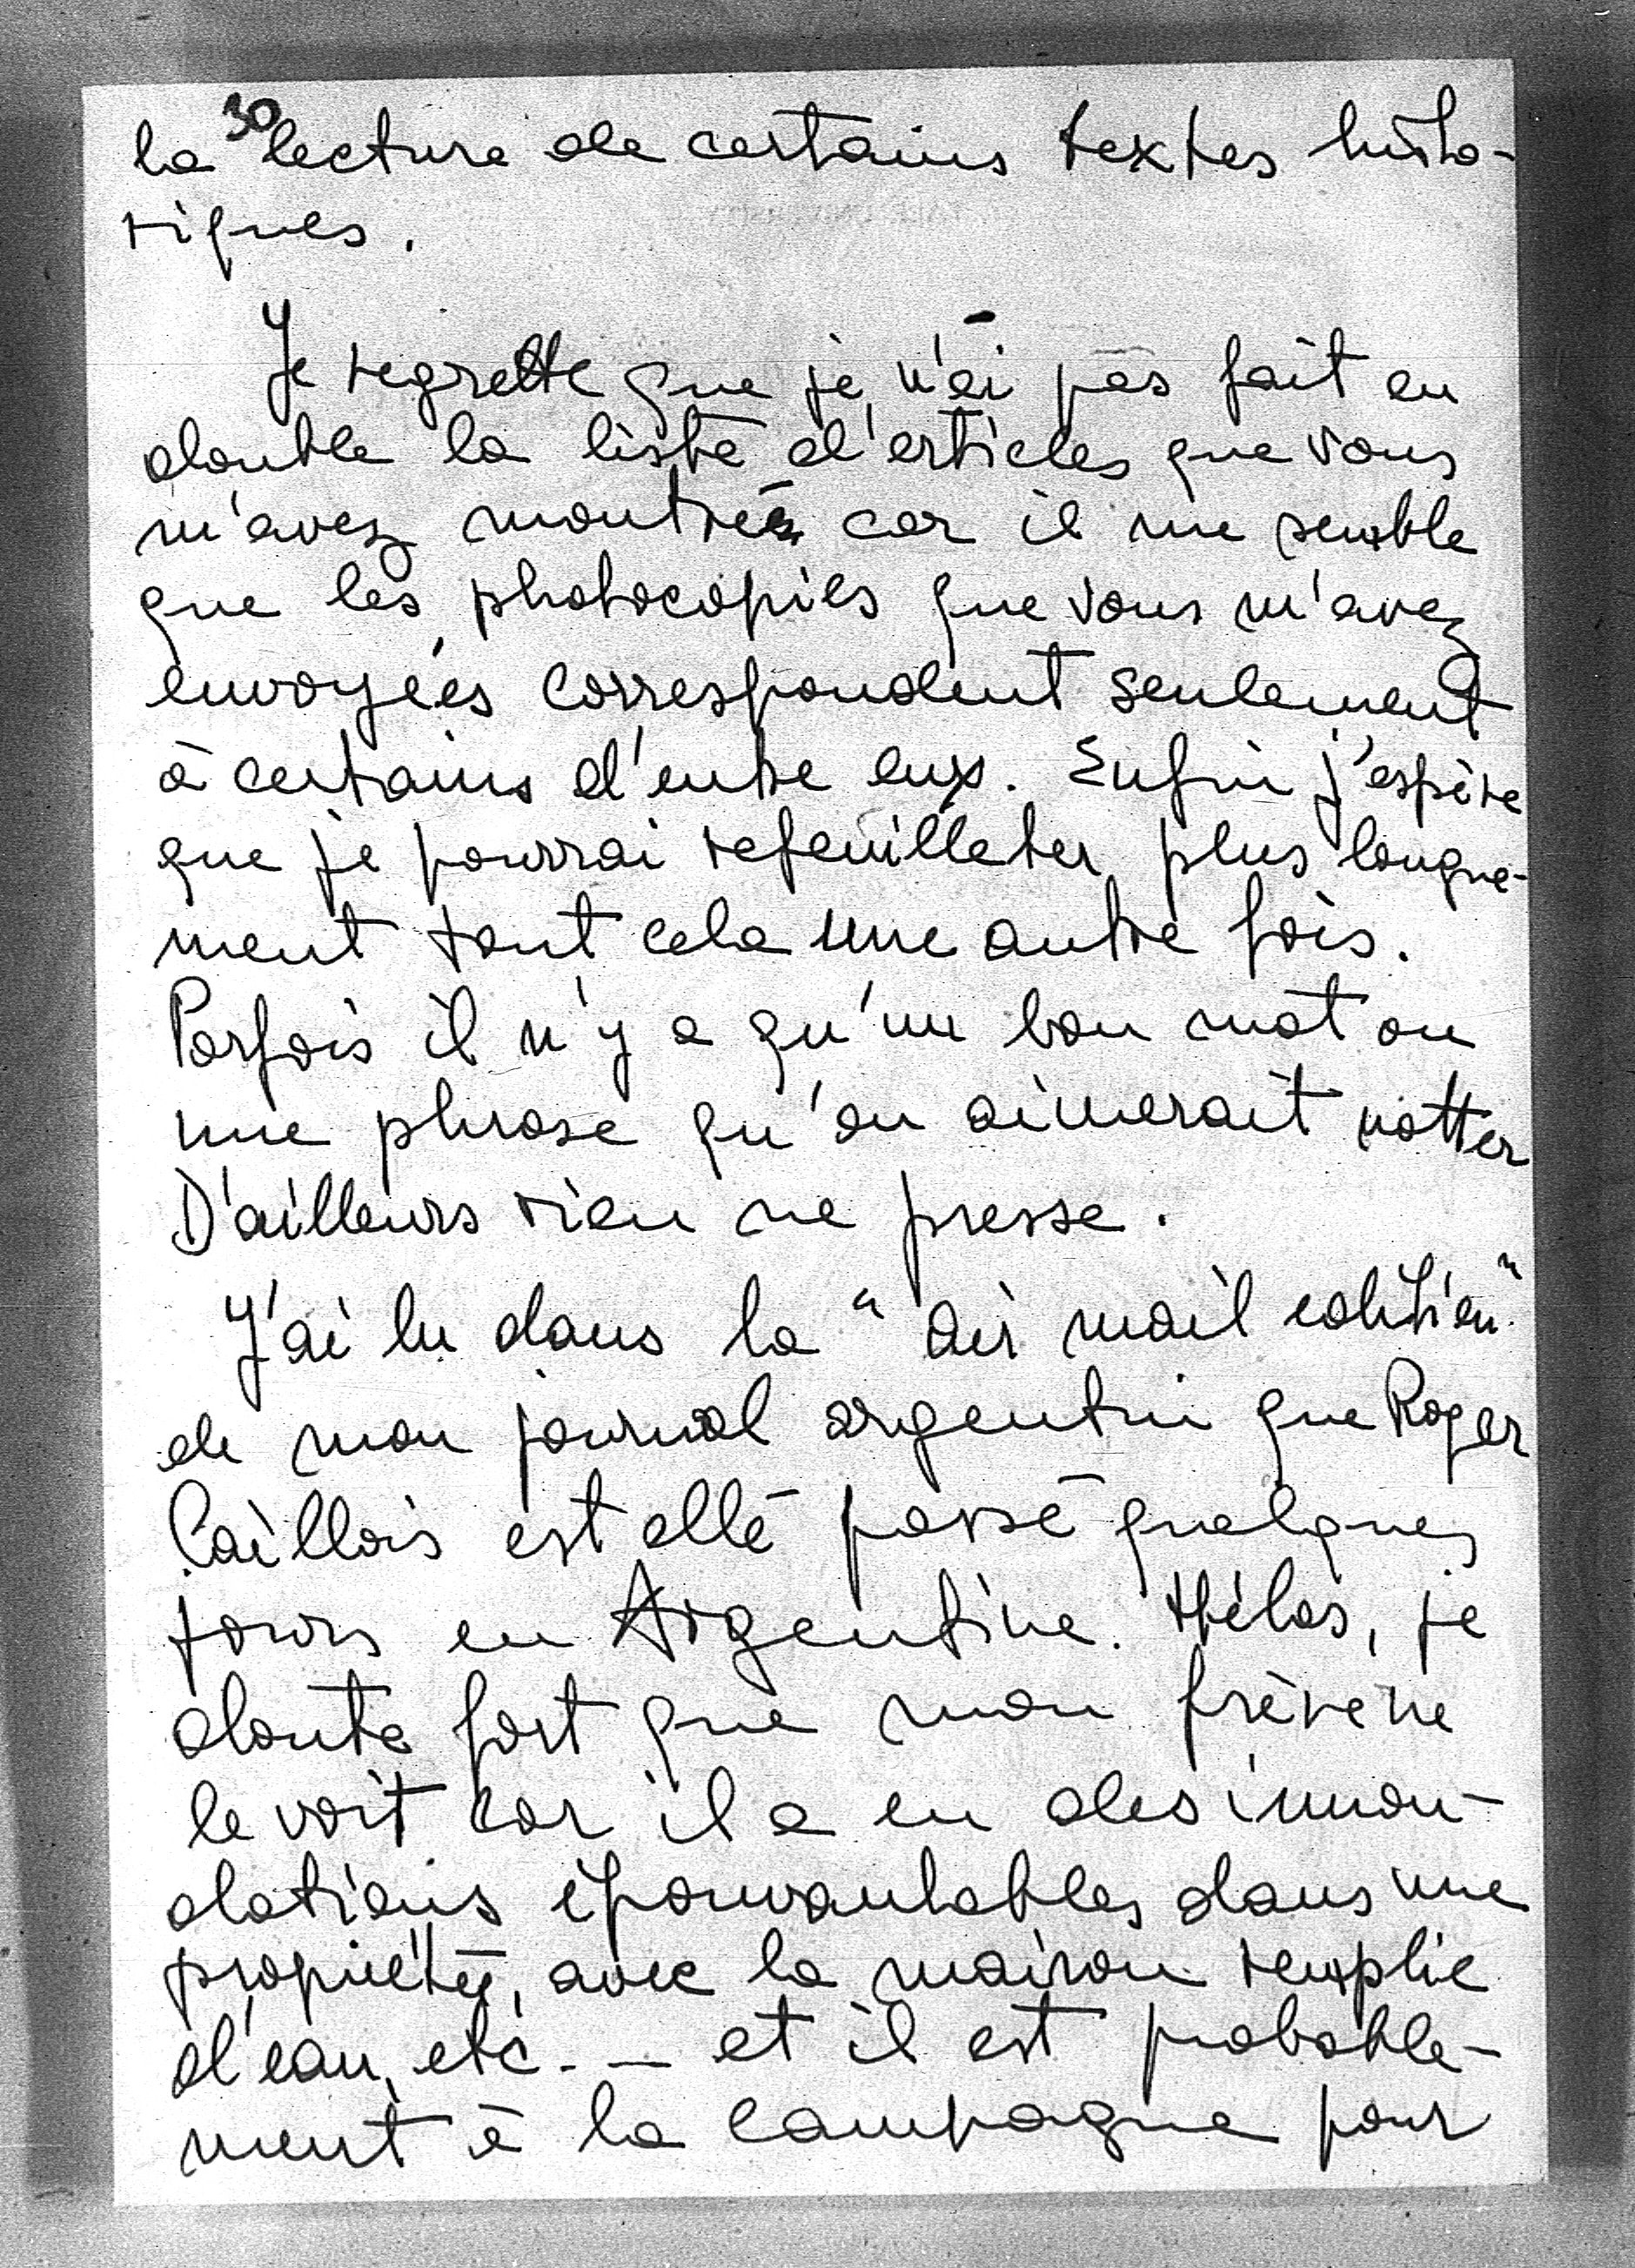 30
la lecture de certains textes histo-
riques.
Je regrette que je n'ai pas fait en
double la liste d'articles que vous
m'avez montrés car il me semble
que les photocopies que vous m'avez
envoyées correspondent seulement
à certains d'entre eux. Enfin j'espère
que je pourrai refeuilleter plus longue-
ment tout cela une autre fois.
Parfois il n'y a qu'un bon mot ou
une phrase qu'on aimerait notter
D'ailleurs rien ne presse.
J'ai lu dans la "air mail edition"
de mon journal argentin que Roger
Caillois est allé passé quelques
jours en Argentine. Hélas, je
doute fort que mon frère ne
le voit car il a eu des innon-
dations épouvantables dans une
propriété, avec la maison remplie
d'eau, etc. — et il est probable-
ment à la campagne pour